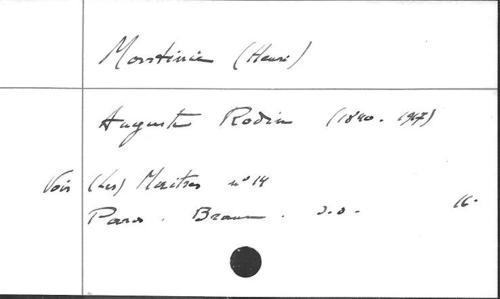 (Henri)
Auguste Rodin (1840. 1917)
Voir (Les) Maitres n° 14
Paris. Braun. s.d. 16.